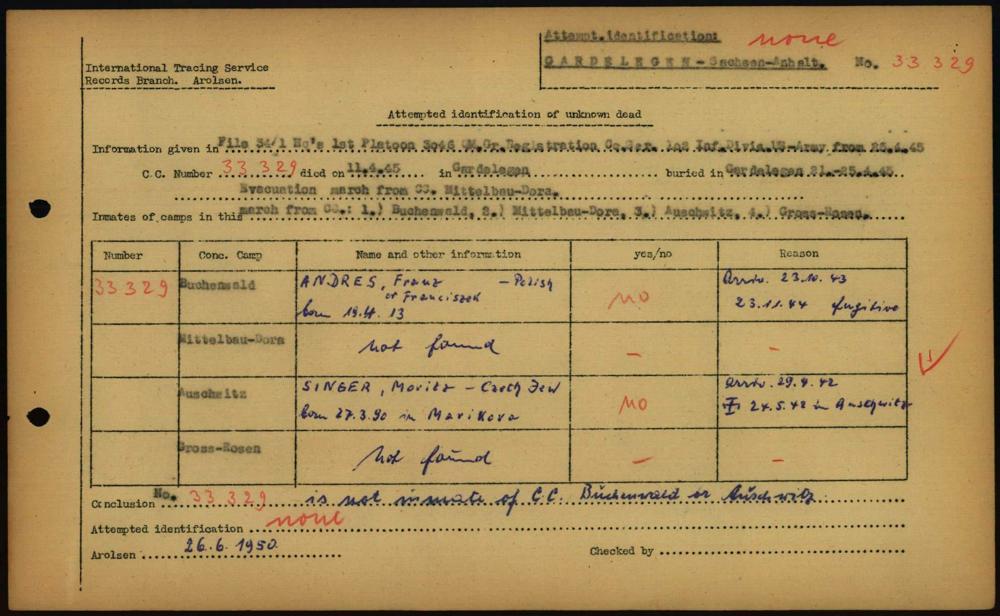 Attempt.identification: none
GARDELEGEN-Sachsen-Anhalt. No. 33 329
International Tracing Service
Records Branch. Arolsen.
Attempted identification of unknown dead
Information given in File 54/1 Hq's 1st Platoon 3046 QM.Gr.Registration Co.Ser. 102 Inf.Divis.US-Army from 25.4.45
C.C. Number 33 329 died on 11.4.45 in Gardelegen buried in Gardelegen 21.-25.4.45
Evacuation march from CC. Mittelbau-Dora.
Inmates of camps in this march from CC.: 1.) Buchenwald, 2.) Mittelbau-Dora, 3.) Auschwitz, 4.) Gross-Rosen.
Number Conc. Camp Name and other information yes/no Reason
33 329 Buchenwald ANDRES, Franz - Polish no arriv. 23.10.43
or Franciszek
born 13 23.11.44 fugitive
Mittelbau-Dora not found - -
Auschwitz SINGER, Moritz - Czech Jew no arriv. 29.4.42
born 27.3.90 in Marikova 24.5.42 in Auschwitz
Gross-Rosen not found - -
Conclusion No. 33 329 is not inmate of C.C. Buchenwald or Auschwitz
Attempted identification none
Arolsen 26.6.1950 Checked by